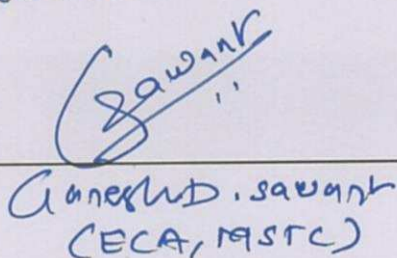 Gsawant
Ganesh D. sawant
(ECA, MSTC)